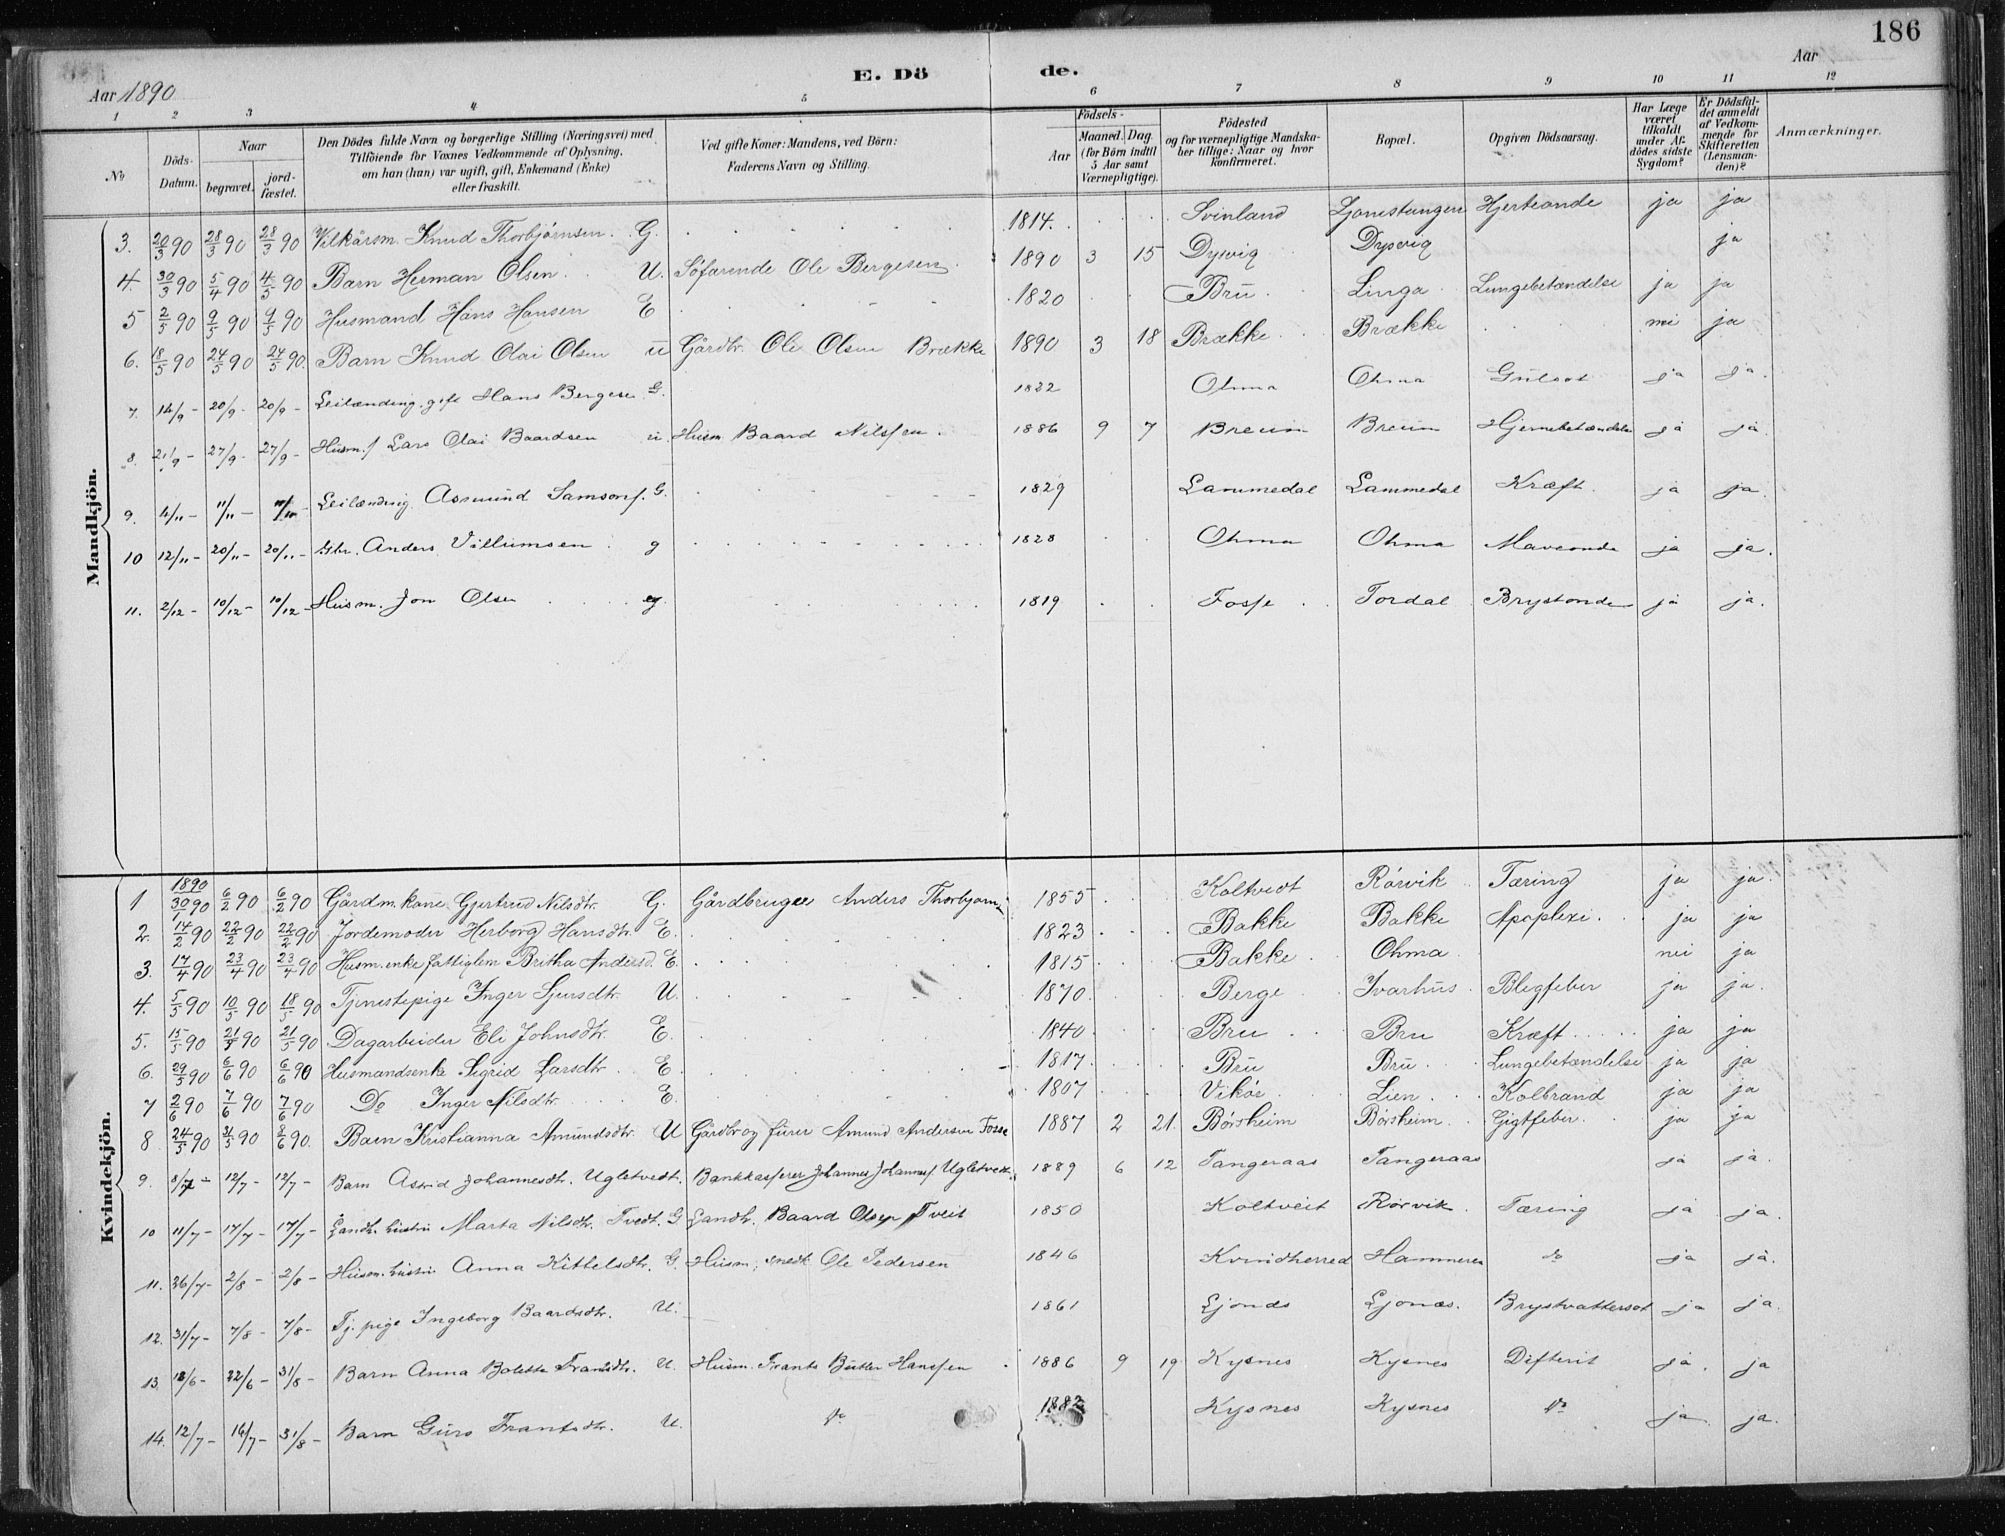 186
E. Döde.
Aar 1890
Aar
1 2 3 4 5 6 7 8 9 10 11 12
No
Döds-Datum.
Naar
begravet.
jord-fæstet.
Den Dödes fulde Navn og borgerlige Stilling (Næringsvei) med
Tilföiende for Voxnes Vedkommende af Oplysning,
om han (hun) var ugift, gift, Enkemand (Enke)
eller fraskilt.
Ved gifte Koner: Mandens, ved Börn:
Faderens Navn og Stilling.
Födsels-
Aar
Maaned. Dag.
(for Börn indtil 5 Aar samt Værnepligtige).
Födested
og for værnepligtige Mandska-
ber tillige: Naar og hvor
konfirmeret.
Bopæl.
Opgiven Dödsaarsag.
Har Læge været tilkaldt under Af-dödes sidste Sygdom?
Er Dödsfal-det anmeldt af Vedkom-mende for Skifteretten (Lensman-den)?
Anmærkninger.
Mandkjön.
3. 20/3 90 28/3 90 28/3 90 Vilkårsm. Knud Thorbjørnsen. G. 1814. Svinland Ljonestangen Hjerteonde ja ja
4. 30/3 90 5/4 90 4/5 90 Barn Herman Olsen U. Söfarende Ole Bergesen 1890 3 15 Dysvig Dysvig ja
5 2/5 90 9/5 90 9/5 90 Husmand Hans Hansen E 1820 Bru Linga Lungebetændelse ja ja
6. 18/5 90 24/5 90 24/5 90. Barn Knud Olai Olsen u Gårdbr. Ole Olsen Brække 1890 3 18 Brække Brække nei ja
7. 14/9 - 20/9 - 20/9 - Leilænding, gift Hans Bergesen G. 1822 Ohma Ohma Gulsot ja ja.
8. 21/9 - 27/9 - 27/9 - Husm./ Lars Olai Baardsen u. Husm. Baard Nilssen. 1886 9 7 Breum Breum Hjernebetændelse ja ja.
9. 4/11 - 11/11 - Leilænding Asmund Samsons. G. 1829 Lammedal Lammedal Kræft. ja ja.
10 12/11 - 20/11 - 20/11 - Gbr. Anders Villumsen g 1828 Ohma Ohma Maveonde ja ja.
11. 2/12 - 10/12 - 10/12 - Husm. Jon Olsen g. 1819 Fosse Tordal Brystonde ja ja.
Kvindekjön.
1 1890 30/1 90 6/2 90 6/2 90 Gårdm. kone Gjertrud Nilsdtr. G. Gårdbruger Anders Thorbjørns. 1855 Koltvedt Rörvik Tæring ja ja.
2. 14/2 90 22/2 90 22/2 90 Jordemoder Herborg Hansdtr. E. 1823 Bakke Bakke Apoplexi. ja ja
3. 17/4 90 23/4 90 23/4 90 Husm. enke fattiglem Britha Andersd. E. 1815 Bakke Ohma nei ja
4. 5/5 90 10/5 90 18/5 90 Tjenestepige Inger Sjursdtr. U. 1870 Berge Ivarhus Blegfeber ja ja.
5. 15/5 90 21/5 90 21/5 90 Dagarbeider Eli Johnsdtr. E. 1840 Bru Bru Kræft ja ja
6. 29/5 90 6/6 90 6/6 90 Husmandsenke Sigrid Larsdtr. E. 1817 Bru Bru Lungebetændelse ja ja
7 2/6 90 7/6 90 7/6 90 Do Inger Nilsdtr. E. 1807 Vikör Lien Kolbrand ja ja
8 24/5 90 31/5 90 8/6 90. Barn Kristianna Amundsdtr. U Gårdbr og fürer Amund Andersen Fosse 1887 2 21. Börsheim Börsheim Gigtfeber. ja ja
9. 8/7 - 12/7 - 12/7 - Barn Astrid Johannesdtr. Ugletvedt. Bankkasserer Johannes Johanness. Ugletvedt. 1889 6 12 Tangeraas Tangeraas ja ja.
10 11/7 - 17/7 - 17/7 - Gaardbr. hustru Marta Nilsdtr. Tvedt. G Gaardbr. Baard Olsen Tveit 1850 Koltveit Rörvik Tæring ja ja.
11. 26/7 - 2/8 - 2/8 - Husm. hustru Anna Kittelsdtr. G. Husm, smed Ole Pedersen 1846 Kvindherred Hammeren do ja ja.
12. 31/7 - 7/8 - 7/8 - Tj. pige Ingeborg Baardsdtr. U. 1861 Ljonæs Ljonæs. Brystvattersot ja ja.
13. 18/6 - 22/6 - 31/8 - Barn Anna Bolette Frantsdtr. U. Husm. Frants Butler Hanssen 1886 9 19 Kysnes Kysnes Difterit ja. ja
14. 12/7 - 16/7 - 31/8 - Barn Guro Frantsdtr. U. do 1882 Kysnes Kysnes do ja ja.